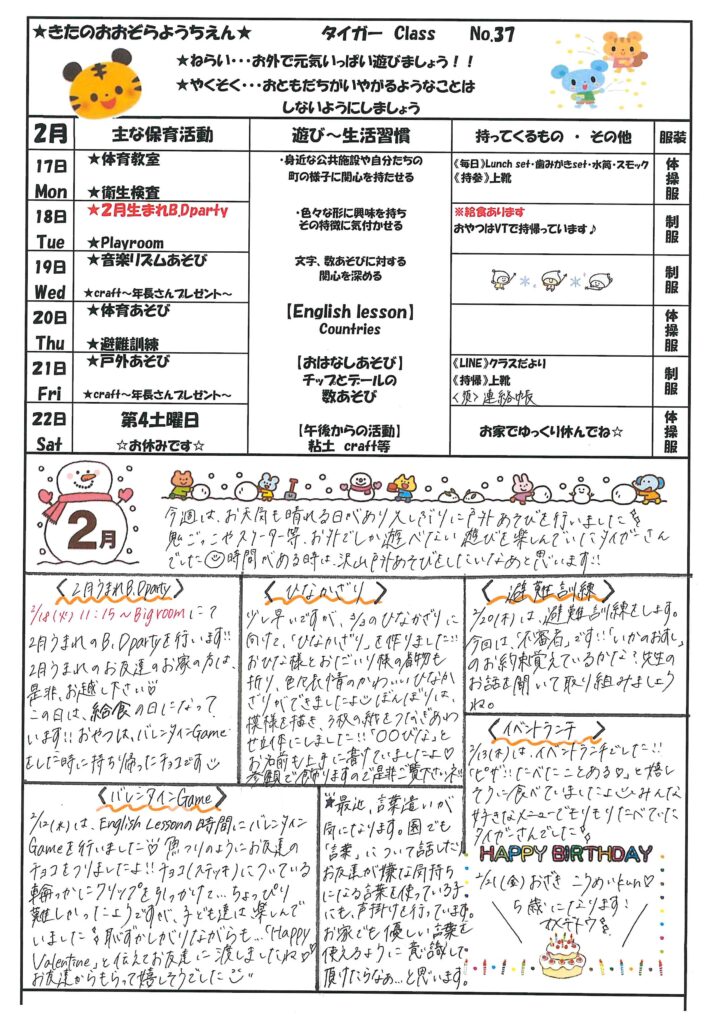 ★きたのおおぞらようちえん★ タイガー Class No.37
★ねらい・・・お外で元気いっぱい遊びましょう！！
★やくそく・・・おともだちがいやがるようなことは
しないようにしましょう
2月 主な保育活動 遊び～生活習慣 持ってくるもの ・ その他 服装
17日 Mon
★体育教室
★衛生検査
・身近な公共施設や自分たちの
町の様子に関心を持たせる
《毎日》Lunch set・歯みがきset・水筒・スモック
《持参》上靴
体操服
18日 Tue
★２月生まれB.Dparty
★Playroom
・色々な形に興味を持ち
その特徴に気付かせる
※給食あります
おやつはVTで持帰っています♪
制服
19日 Wed
★音楽リズムあそび
★craft～年長さんプレゼント～
文字、数あそびに対する
関心を深める
制服
20日 Thu
★体育あそび
★避難訓練
【English lesson】
Countries
体操服
21日 Fri
★戸外あそび
★craft～年長さんプレゼント～
【おはなしあそび】
チップとデールの
数あそび
《LINE》クラスだより
《持帰》上靴
〈須〉連絡帳
制服
22日 Sat
第4土曜日
☆お休みです☆
【午後からの活動】
粘土 craft等
お家でゆっくり休んでね☆
体操服
2月
今週は、お天気も晴れる日があり久しぶりに戸外あそびを行いました
鬼ごっこやスクーター等、お外でしか遊べない遊びを楽しんでいたタイガーさん
でした 時間がある時は、沢山戸外あそびをしたいなあと思います!!
〈2月うまれB.Dparty〉
2/18(火) 11:15～Bigroomにて
2月うまれのB.Dpartyを行います!!
2月うまれのお友達のお家の方は、
是非、お越し下さい♡
この日は、給食の日になって
います!! おやつは、バレンタインGame
をした時に持ち帰ったチョコです
〈ひなかざり〉
少し早いですが、3/3のひなかざりに
向けて、「ひなかざり」を作りました!!
おひな様とおだいり様の着物も
折り、色んな表情のかわいいひなか
ざりができましたよ ぼんぼりは、
模様を描き、3枚の紙をつなぎあわ
せ立体にしました!!「○○びな」と
お名前も上手に書けていましたよ♡
参観で飾りますので是非ご覧下さいネ!!
〈避難訓練〉
2/20(木)は、避難訓練をします。
今回は、"不審者"です!!「いかのおすし」
のお約束覚えているかな？先生の
お話を聞いて取り組みましょう
ね。
〈イベントランチ〉
2/13(木)は、イベントランチでした!!
「ピザ!!たべたことある♡」と嬉し
そうに食べていましたよ みんな
好きなメニューでもりもりたべていた
タイガーさんでした
〈バレンタインGame〉
2/12(水)は、English Lessonの時間にバレンタイン
Gameを行いました 魚つりのようにお友達の
チョコをつりましたよ!! チョコ(ステッキ)についている
輪っかにクリップを引っかけて…ちょっぴり
難しかったようですが、子ども達は楽しんで
いました 恥ずかしがりながらも…「Happy
Valentine」と伝えてお友達に渡しましたね♡
お友達からもらって嬉しそうでした
★最近、言葉遣いが
気になります。園でも
「言葉」について話したり
お友達が嫌な気持ち
になる言葉を使っている子
にも、声掛けを行っています。
お家でも優しい言葉を
使えるように意識して
頂けたらなぁ…と思います。
HAPPY BIRTHDAY
2/21(金)おざき こうめいkun♡
5歳になります!
オメデトウ